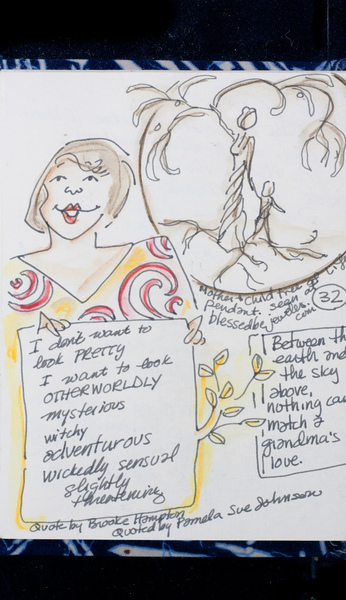 I don't want to
look PRETTY
I want to look
OTHERWORLDLY
mysterious
witchy
adventurous
wickedly sensual
slightly
threatening
Quote by Brooke Hampton
Quoted by Pamela Sue Johnson
Mother + Child Tree of
pendant. Seen
blessedbejewels.
com
32
Between th
earth and
the sky
above,
nothing can
match a
grandma's
love.